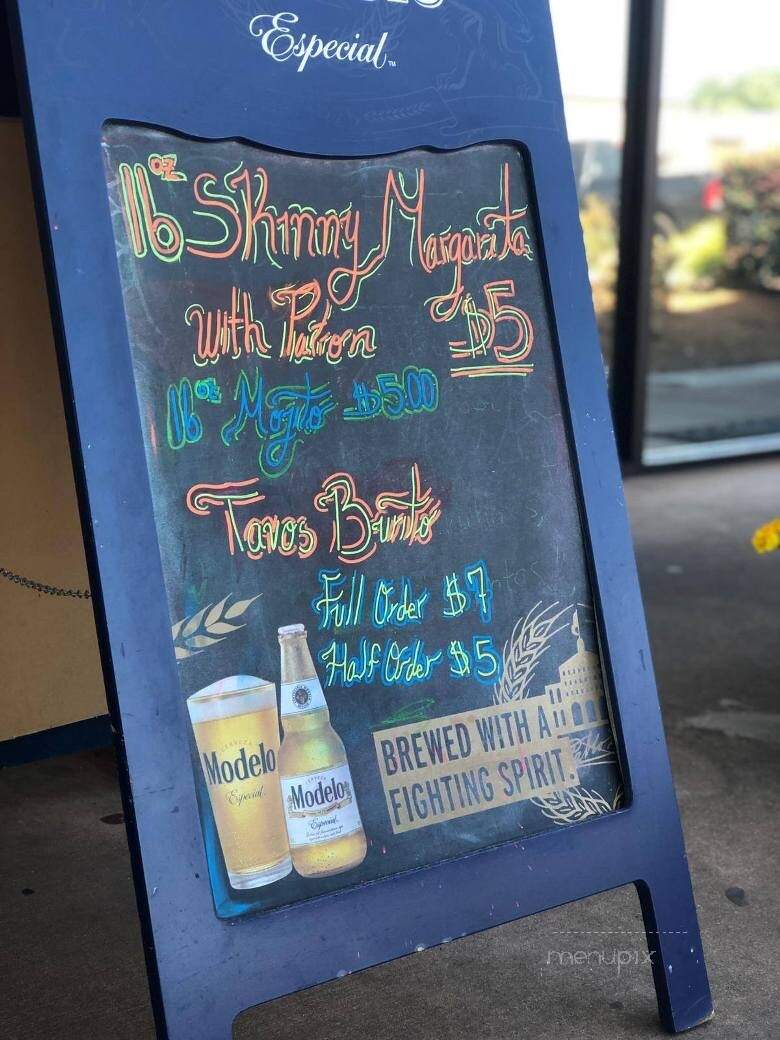 Especial
16oz Skinny Margarita
with Patron $5
16oz Mojito $5.00
Tavos Burito
Full Order $7
Half Order $5
BREWED WITH A
FIGHTING SPIRIT.
CERVEZA
Modelo
Especial
CERVEZA
Modelo
Especial
menupix